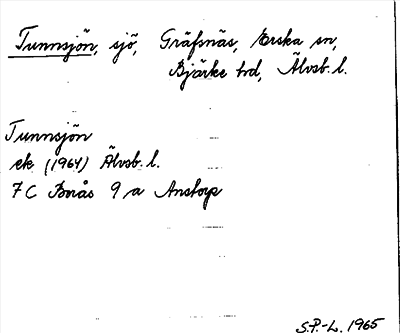 Tunnsjön, sjö, Gräfsnäs, Erska sn,
Bjärke hd, Älvsb. l.
Tunnsjön
ek (1964) Älvsb. l.
7C Borås 9 a Anstorp
S.P.-L. 1965